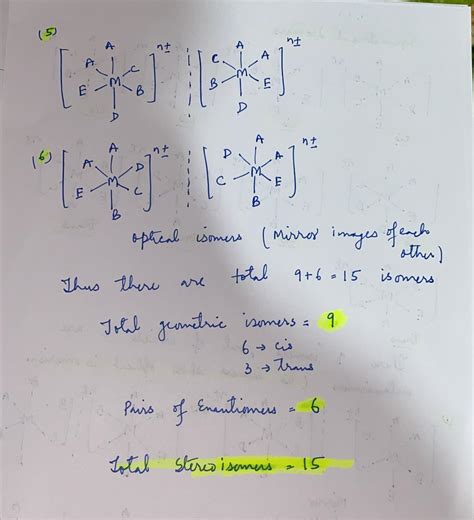 (5)
A A
A C C A
[ M ]n± [ M ]n±
E B B E
D D
(6)
A A
A D D A
[ M ]n± [ M ]n±
E C C E
B B
optical isomers (Mirror images of each
other)
Thus there are total 9+6=15 isomers
Total geometric isomers = 9
6 → cis
3 → Trans
Pairs of Enantiomers = 6
Total Stereoisomers = 15